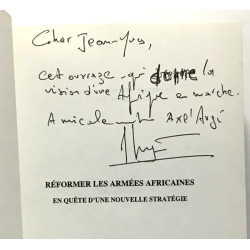 Cher Jean-Yves,
cet ouvrage qui donne la
vision d'une Afrique en marche.
Amicalement Axel Augé
RÉFORMER LES ARMÉES AFRICAINES
EN QUÊTE D'UNE NOUVELLE STRATÉGIE